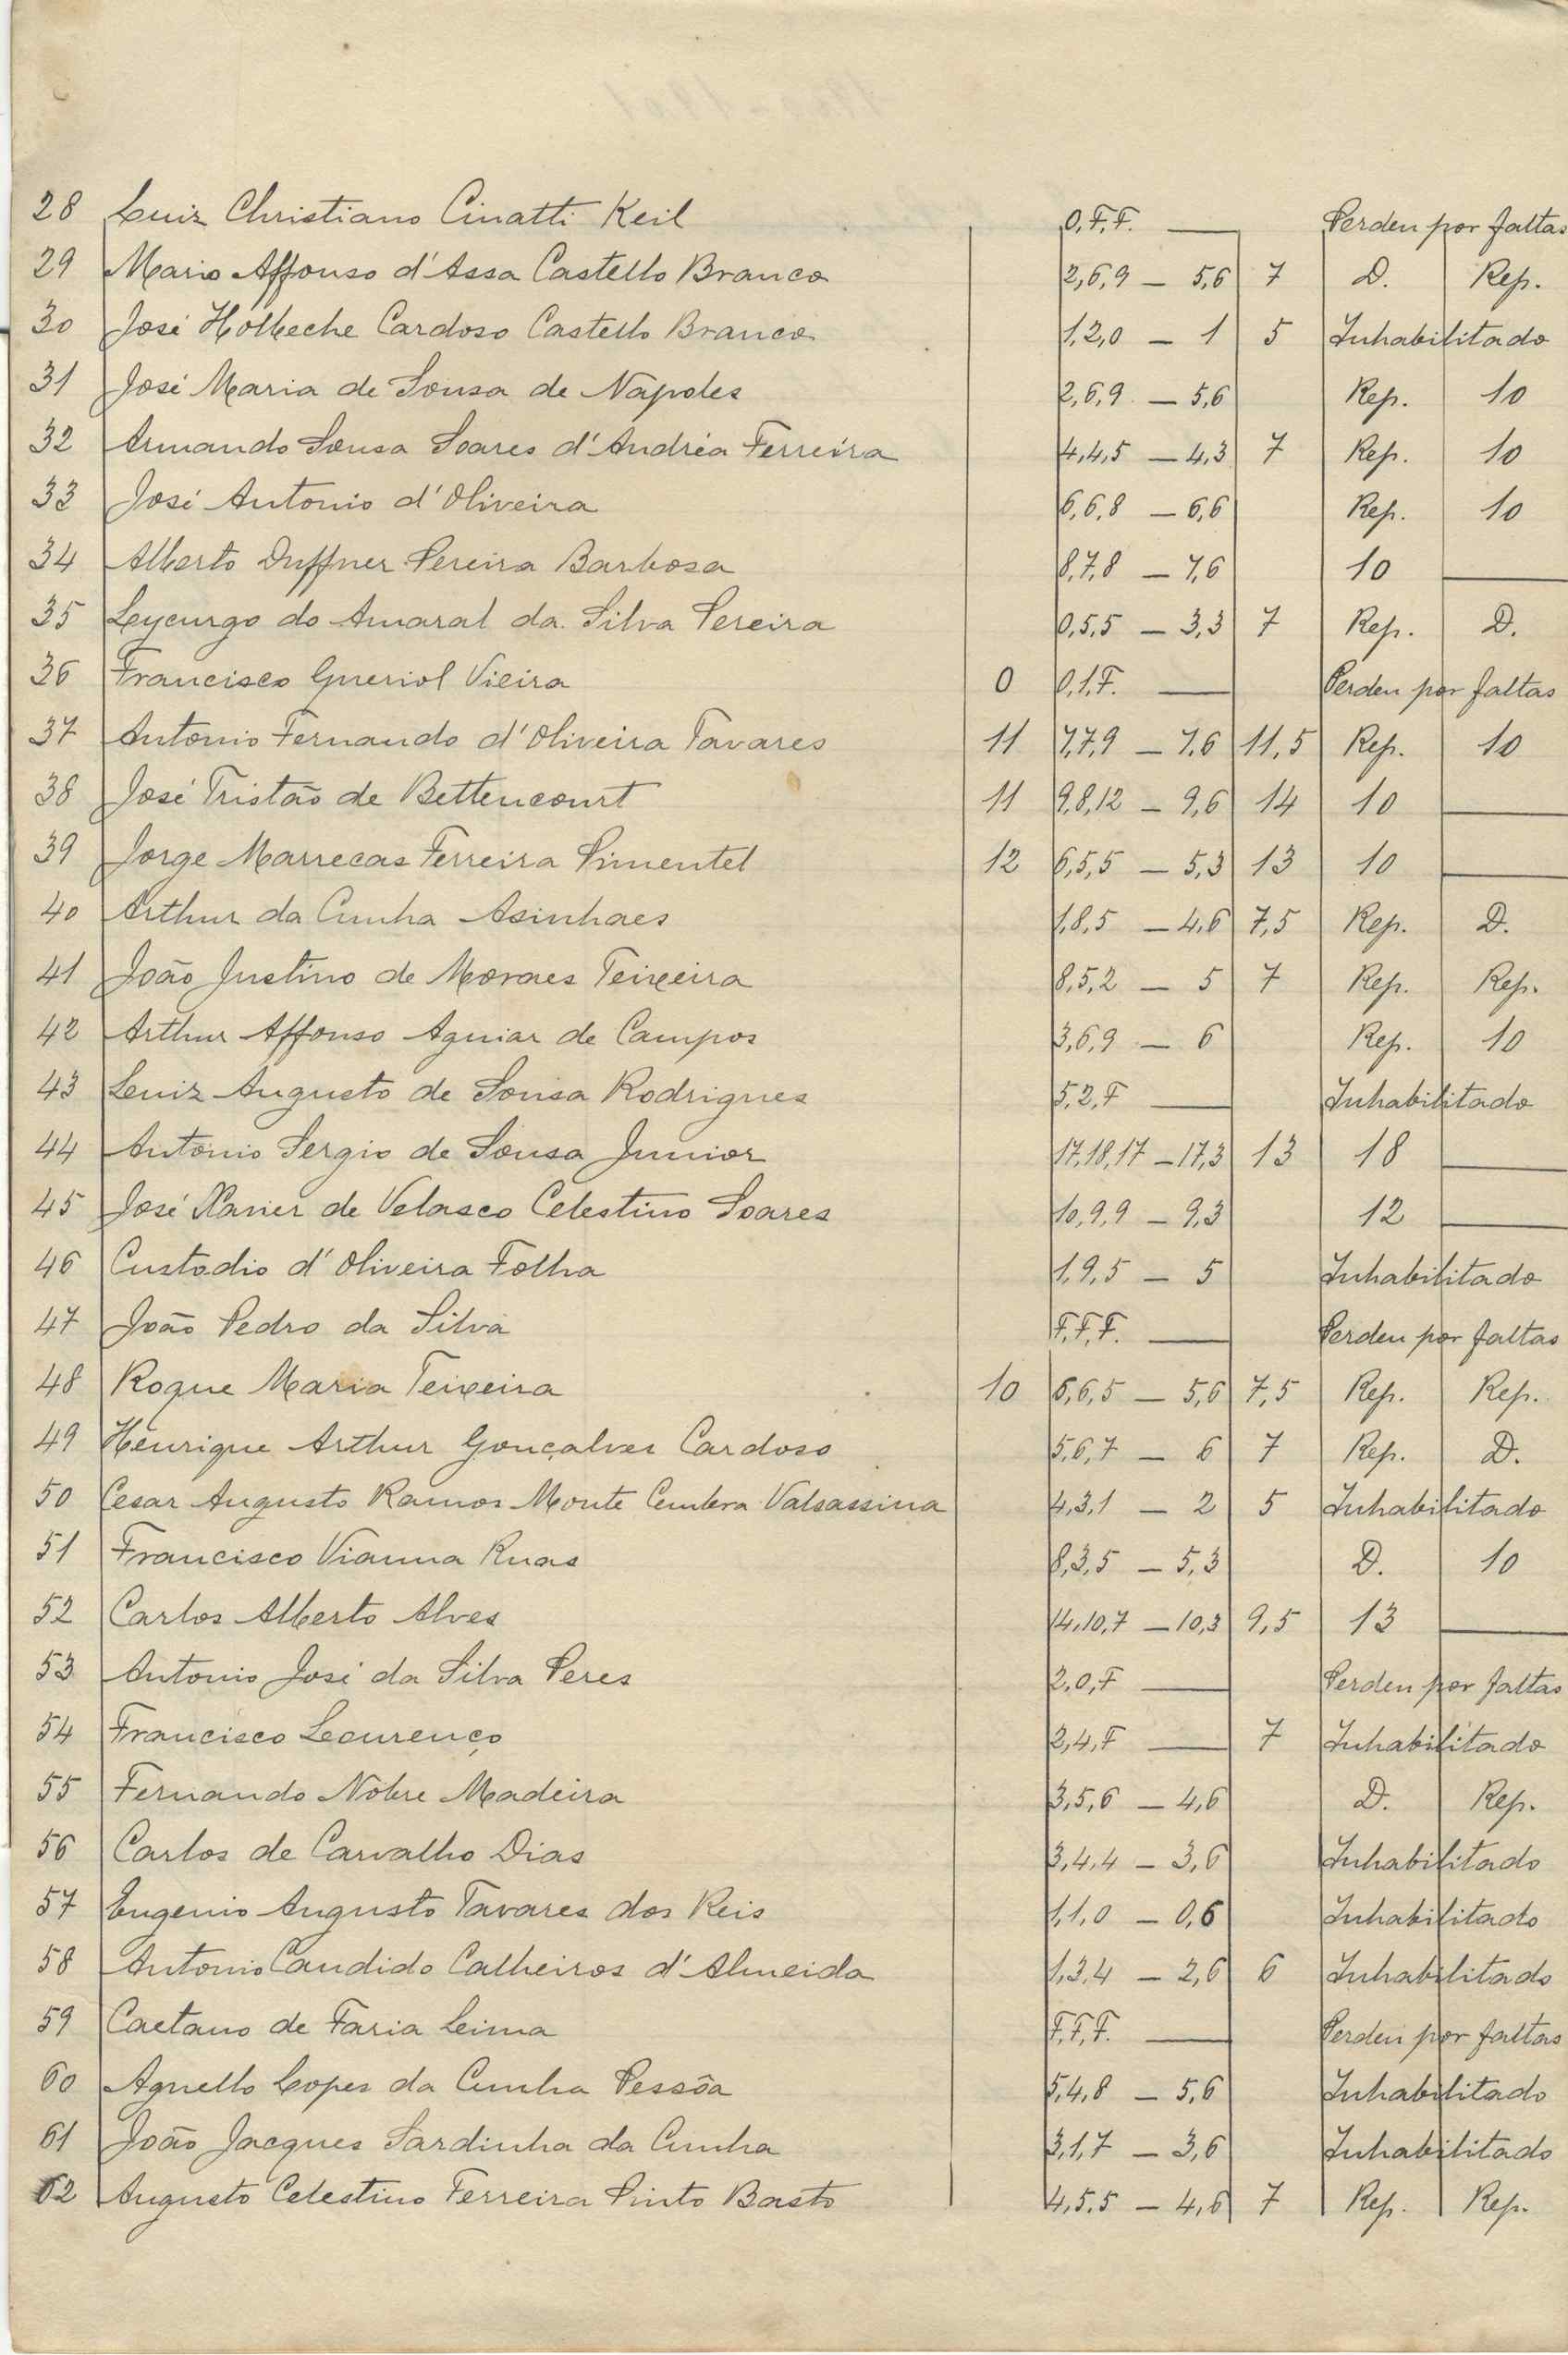 28 Luiz Christiano Cinatti Keil 0, F, F. — Perdeu por faltas
29 Mario Affonso d'Assa Castello Branco 2,6,9 — 5,6 7 D. Rep.
30 José Holbeche Cardoso Castello Branco 1,2,0 — 1 5 Inhabilitado
31 José Maria de Sousa de Napoles 2,6,9 — 5,6 Rep. 10
32 Armando Sousa Soares d'Andréa Ferreira 4,4,5 — 4,3 7 Rep. 10
33 José Antonio d'Oliveira 6,6,8 — 6,6 Rep. 10
34 Alberto Duffner Pereira Barbosa 8,7,8 — 7,6 10 —
35 Lycurgo do Amaral da Silva Pereira 0,5,5 — 3,3 7 Rep. D.
36 Francisco Gueriol Vieira 0 0,1,F. — Perdeu por faltas
37 Antonio Fernando d'Oliveira Tavares 11 7,7,9 — 7,6 11,5 Rep. 10
38 José Tristão de Bettencourt 11 9,8,12 — 9,6 14 10 —
39 Jorge Marrecas Ferreira Pimentel 12 6,5,5 — 5,3 13 10 —
40 Arthur da Cunha Asinhaes 1,8,5 — 4,6 7,5 Rep. D.
41 João Justino de Moraes Teixeira 8,5,2 — 5 7 Rep. Rep.
42 Arthur Affonso Aguiar de Campos 3,6,9 — 6 Rep. 10
43 Luiz Augusto de Sousa Rodrigues 5,2,F — Inhabilitado
44 Antonio Sergio de Sousa Junior 17,18,17 — 17,3 13 18 —
45 José Xavier de Velasco Celestino Soares 10,9,9 — 9,3 12 —
46 Custodio d'Oliveira Folha 1,9,5 — 5 Inhabilitado
47 João Pedro da Silva F,F,F. — Perdeu por faltas
48 Roque Maria Teixeira 10 6,6,5 — 5,6 7,5 Rep. Rep.
49 Henrique Arthur Gonçalves Cardoso 5,6,7 — 6 7 Rep. D.
50 Cesar Augusto Ramos Monte Cembra Valsassina 4,3,1 — 2 5 Inhabilitado
51 Francisco Vianna Ruas 8,3,5 — 5,3 D. 10
52 Carlos Alberto Alves 14,10,7 — 10,3 9,5 13 —
53 Antonio José da Silva Peres 2,0,F — Perdeu por faltas
54 Francisco Lourenço 2,4,F — 7 Inhabilitado
55 Fernando Nobre Madeira 3,5,6 — 4,6 D. Rep.
56 Carlos de Carvalho Dias 3,4,4 — 3,6 Inhabilitado
57 Eugenio Augusto Tavares dos Reis 1,1,0 — 0,6 Inhabilitado
58 Antonio Candido Calheiros d'Almeida 1,3,4 — 2,6 6 Inhabilitado
59 Caetano de Faria Leima F,F,F. — Perdeu por faltas
60 Agnello Lopes da Cunha Pessôa 5,4,8 — 5,6 Inhabilitado
61 João Jacques Sardinha da Cunha 3,1,7 — 3,6 Inhabilitado
62 Augusto Celestino Ferreira Pinto Basto 4,5,5 — 4,6 7 Rep. Rep.